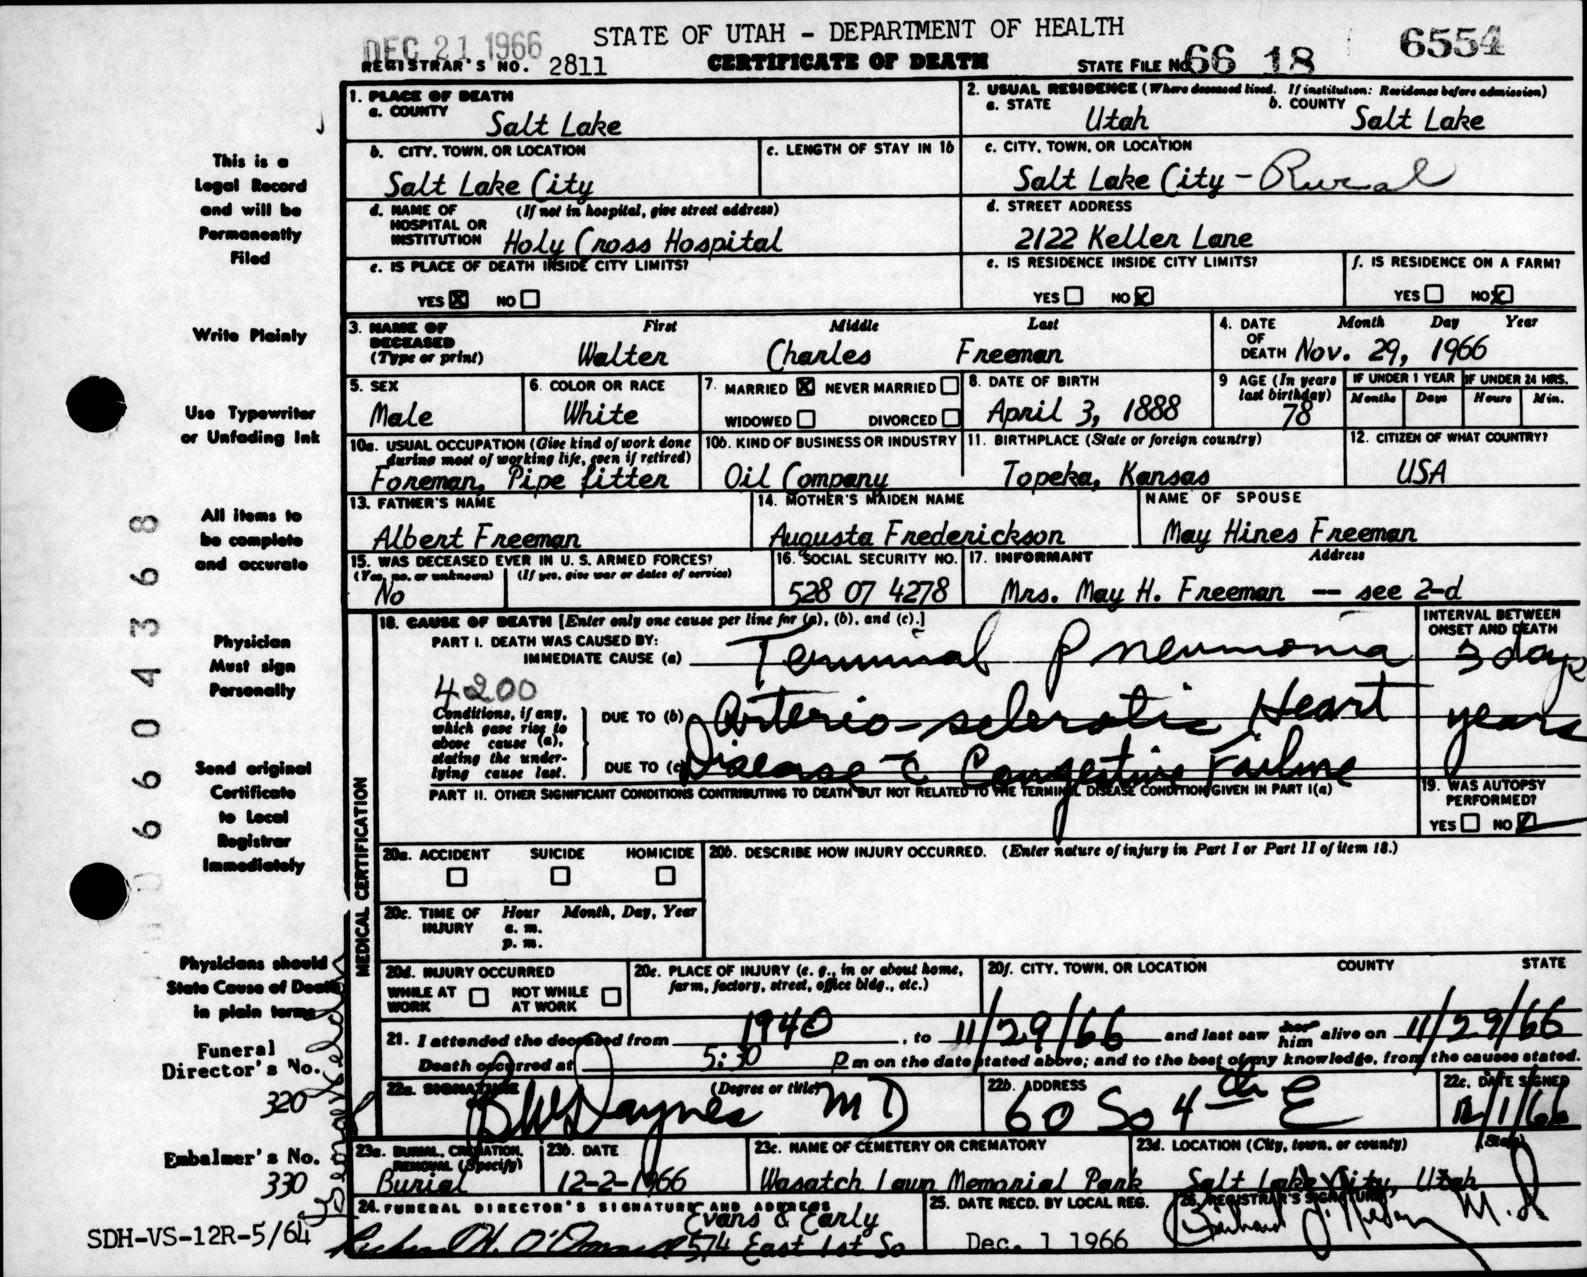 DEC 21 1966
STATE OF UTAH - DEPARTMENT OF HEALTH
6554
REGISTRAR'S NO. 2811
CERTIFICATE OF DEATH
STATE FILE NO. 66 18
This is a
Legal Record
and will be
Permanently
Filed
Write Plainly
Use Typewriter
or Unfading Ink
All items to
be complete
and accurate
Physician
Must sign
Personally
Send original
Certificate
to Local
Registrar
Immediately
Physicians should
State Cause of Death
in plain terms
Funeral
Director's No.
320
Embalmer's No.
330
SDH-VS-12R-5/64
660 4368
1. PLACE OF DEATH
a. COUNTY
Salt Lake
2. USUAL RESIDENCE (Where deceased lived. If institution: Residence before admission)
a. STATE
Utah
b. COUNTY
Salt Lake
b. CITY, TOWN, OR LOCATION
Salt Lake City
c. LENGTH OF STAY IN 1b
c. CITY, TOWN, OR LOCATION
Salt Lake City - Rural
d. NAME OF HOSPITAL OR INSTITUTION (If not in hospital, give street address)
Holy Cross Hospital
d. STREET ADDRESS
2122 Keller Lane
e. IS PLACE OF DEATH INSIDE CITY LIMITS?
YES ☒ NO ☐
e. IS RESIDENCE INSIDE CITY LIMITS?
YES ☐ NO ☒
f. IS RESIDENCE ON A FARM?
YES ☐ NO ☒
3. NAME OF DECEASED (Type or print)
First Middle Last
Walter Charles Freeman
4. DATE OF DEATH
Month Day Year
Nov. 29, 1966
5. SEX
Male
6. COLOR OR RACE
White
7. MARRIED ☒ NEVER MARRIED ☐
WIDOWED ☐ DIVORCED ☐
8. DATE OF BIRTH
April 3, 1888
9 AGE (In years last birthday)
78
IF UNDER 1 YEAR
Months Days
IF UNDER 24 HRS.
Hours Min.
10a. USUAL OCCUPATION (Give kind of work done during most of working life, even if retired)
Foreman, Pipe fitter
10b. KIND OF BUSINESS OR INDUSTRY
Oil Company
11. BIRTHPLACE (State or foreign country)
Topeka, Kansas
12. CITIZEN OF WHAT COUNTRY?
USA
13. FATHER'S NAME
Albert Freeman
14. MOTHER'S MAIDEN NAME
Augusta Frederickson
NAME OF SPOUSE
May Hines Freeman
15. WAS DECEASED EVER IN U. S. ARMED FORCES?
(Yes, no, or unknown) (If yes, give war or dates of service)
No
16. SOCIAL SECURITY NO.
528 07 4278
17. INFORMANT Address
Mrs. May H. Freeman -- see 2-d
MEDICAL CERTIFICATION
18. CAUSE OF DEATH [Enter only one cause per line for (a), (b), and (c).]
PART I. DEATH WAS CAUSED BY:
IMMEDIATE CAUSE (a) Terminal Pneumonia
INTERVAL BETWEEN ONSET AND DEATH
3 days
4200
Conditions, if any, which gave rise to above cause (a), stating the underlying cause last.
DUE TO (b) Arterio-sclerotic Heart
years
DUE TO (c) Disease c̄ Congestive Failure
PART II. OTHER SIGNIFICANT CONDITIONS CONTRIBUTING TO DEATH BUT NOT RELATED TO THE TERMINAL DISEASE CONDITION GIVEN IN PART I(a)
19. WAS AUTOPSY PERFORMED?
YES ☐ NO ☑
20a. ACCIDENT SUICIDE HOMICIDE
☐ ☐ ☐
20b. DESCRIBE HOW INJURY OCCURRED. (Enter nature of injury in Part I or Part II of item 18.)
20c. TIME OF INJURY Hour Month, Day, Year
a. m.
p. m.
20d. INJURY OCCURRED
WHILE AT WORK ☐ NOT WHILE AT WORK ☐
20e. PLACE OF INJURY (e. g., in or about home, farm, factory, street, office bldg., etc.)
20f. CITY, TOWN, OR LOCATION COUNTY STATE
21. I attended the deceased from 1940, to 11/29/66 and last saw her him alive on 11/29/66
Death occurred at 5:30 p m on the date stated above; and to the best of my knowledge, from the causes stated.
22a. SIGNATURE (Degree or title)
Daynes MD
22b. ADDRESS
60 So 4th E
22c. DATE SIGNED
12/1/66
23a. BURIAL, CREMATION, REMOVAL (Specify)
Burial
23b. DATE
12-2-1966
23c. NAME OF CEMETERY OR CREMATORY
Wasatch Lawn Memorial Park
23d. LOCATION (City, town, or county) (State)
Salt Lake City, Utah
24. FUNERAL DIRECTOR'S SIGNATURE AND ADDRESS
Evans & Early
574 East 1st So
25. DATE RECD. BY LOCAL REG.
Dec. 1 1966
26. REGISTRAR'S SIGNATURE
M.D.